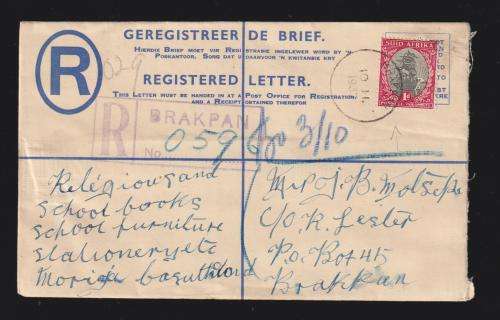 GEREGISTREERDE BRIEF.
HIERDIE BRIEF MOET VIR REGISTRASIE INGELEWER WORD BY 'N
POSKANTOOR. SORG DAT U DAARVOOR 'N KWITANSIE KRY
REGISTERED LETTER.
THIS LETTER MUST BE HANDED IN AT A POST OFFICE FOR REGISTRATION,
AND A RECEIPT OBTAINED THEREFOR
R
SUID AFRIKA
1D
R
BRAKPAN
No.
0596
3/10
Religious and
School books
School furniture
Stationery etc
Morija Basutoland
Mr J. B. Motsepe
C/O R. Lester
P.O. Box 45
Brakpan